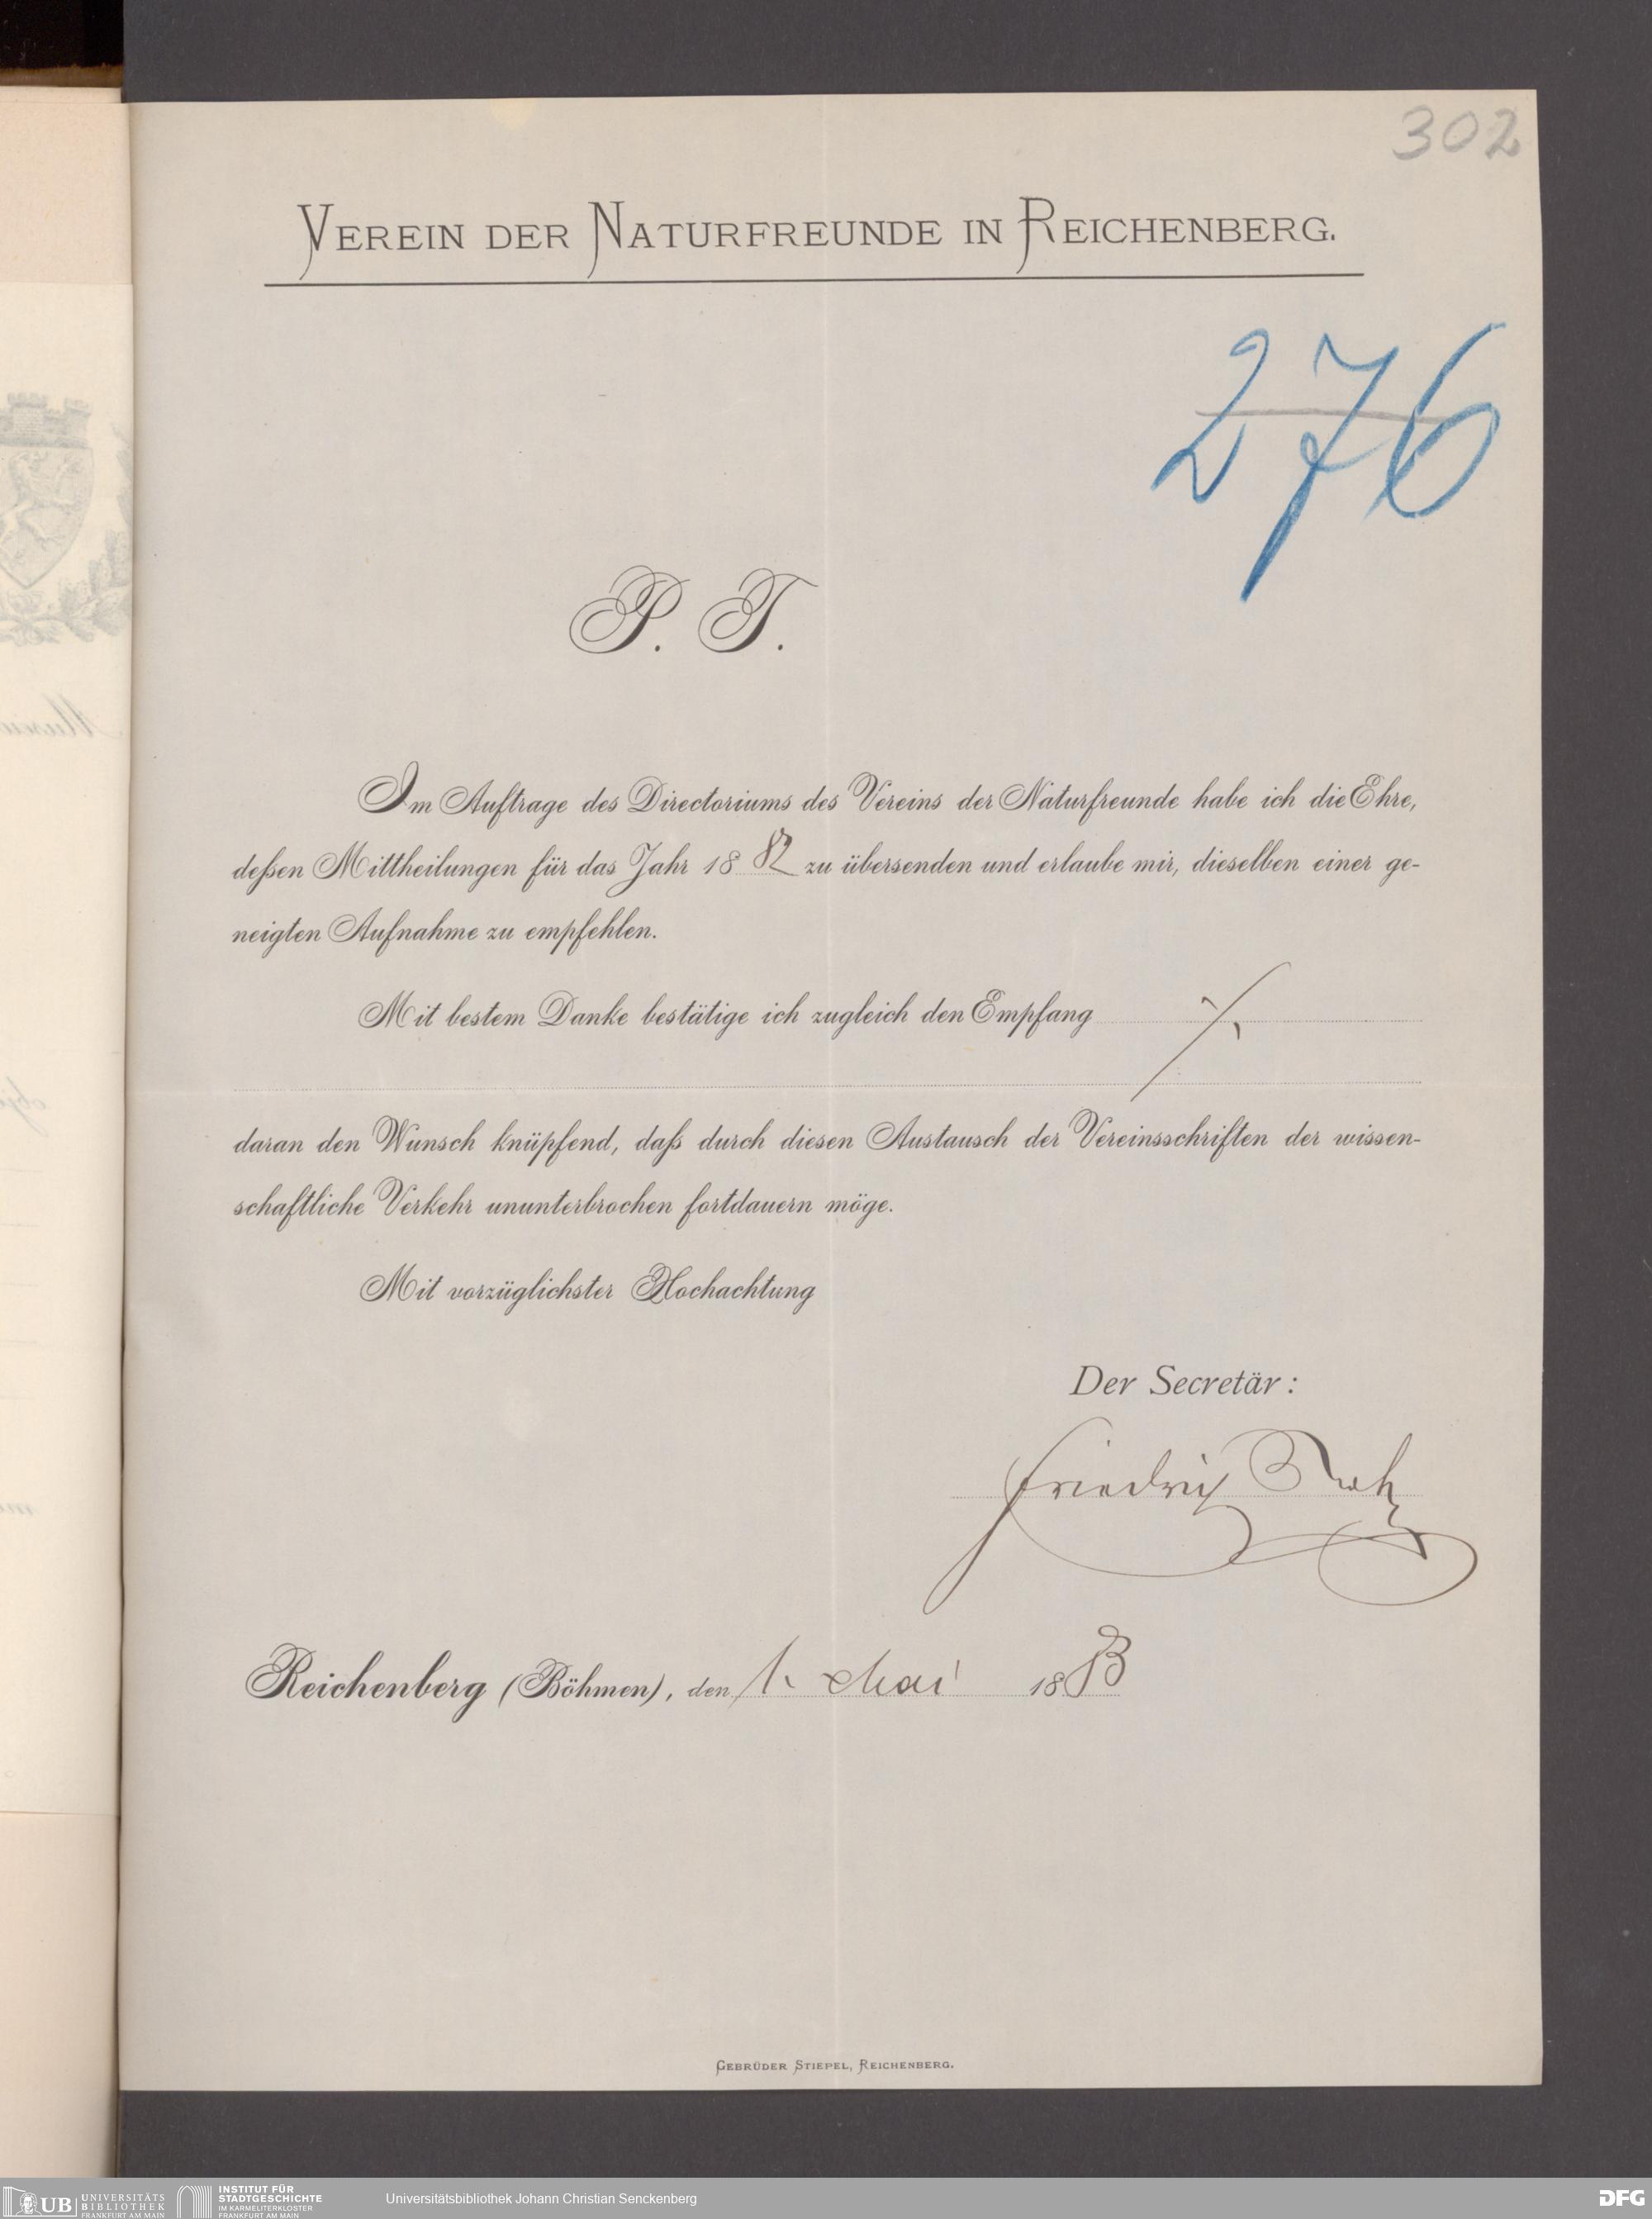 302
VEREIN DER NATURFREUNDE IN REICHENBERG.
276
P. T.
Im Auftrage des Directoriums des Vereins der Naturfreunde habe ich die Ehre,
deßen Mittheilungen für das Jahr 18 82 zu übersenden und erlaube mir, dieselben einer ge-
neigten Aufnahme zu empfehlen.
Mit bestem Danke bestätige ich zugleich den Empfang
daran den Wunsch knüpfend, daß durch diesen Austausch der Vereinsschriften der wissen-
schaftliche Verkehr ununterbrochen fortdauern möge.
Mit vorzüglichster Hochachtung
Der Secretär:
Friedrich
Reichenberg (Böhmen), den 1. Mai 1883
GEBRÜDER STIEPEL, REICHENBERG.
UB UNIVERSITÄTS BIBLIOTHEK FRANKFURT AM MAIN
INSTITUT FÜR STADTGESCHICHTE IM KARMELITERKLOSTER FRANKFURT AM MAIN
Universitätsbibliothek Johann Christian Senckenberg
DFG